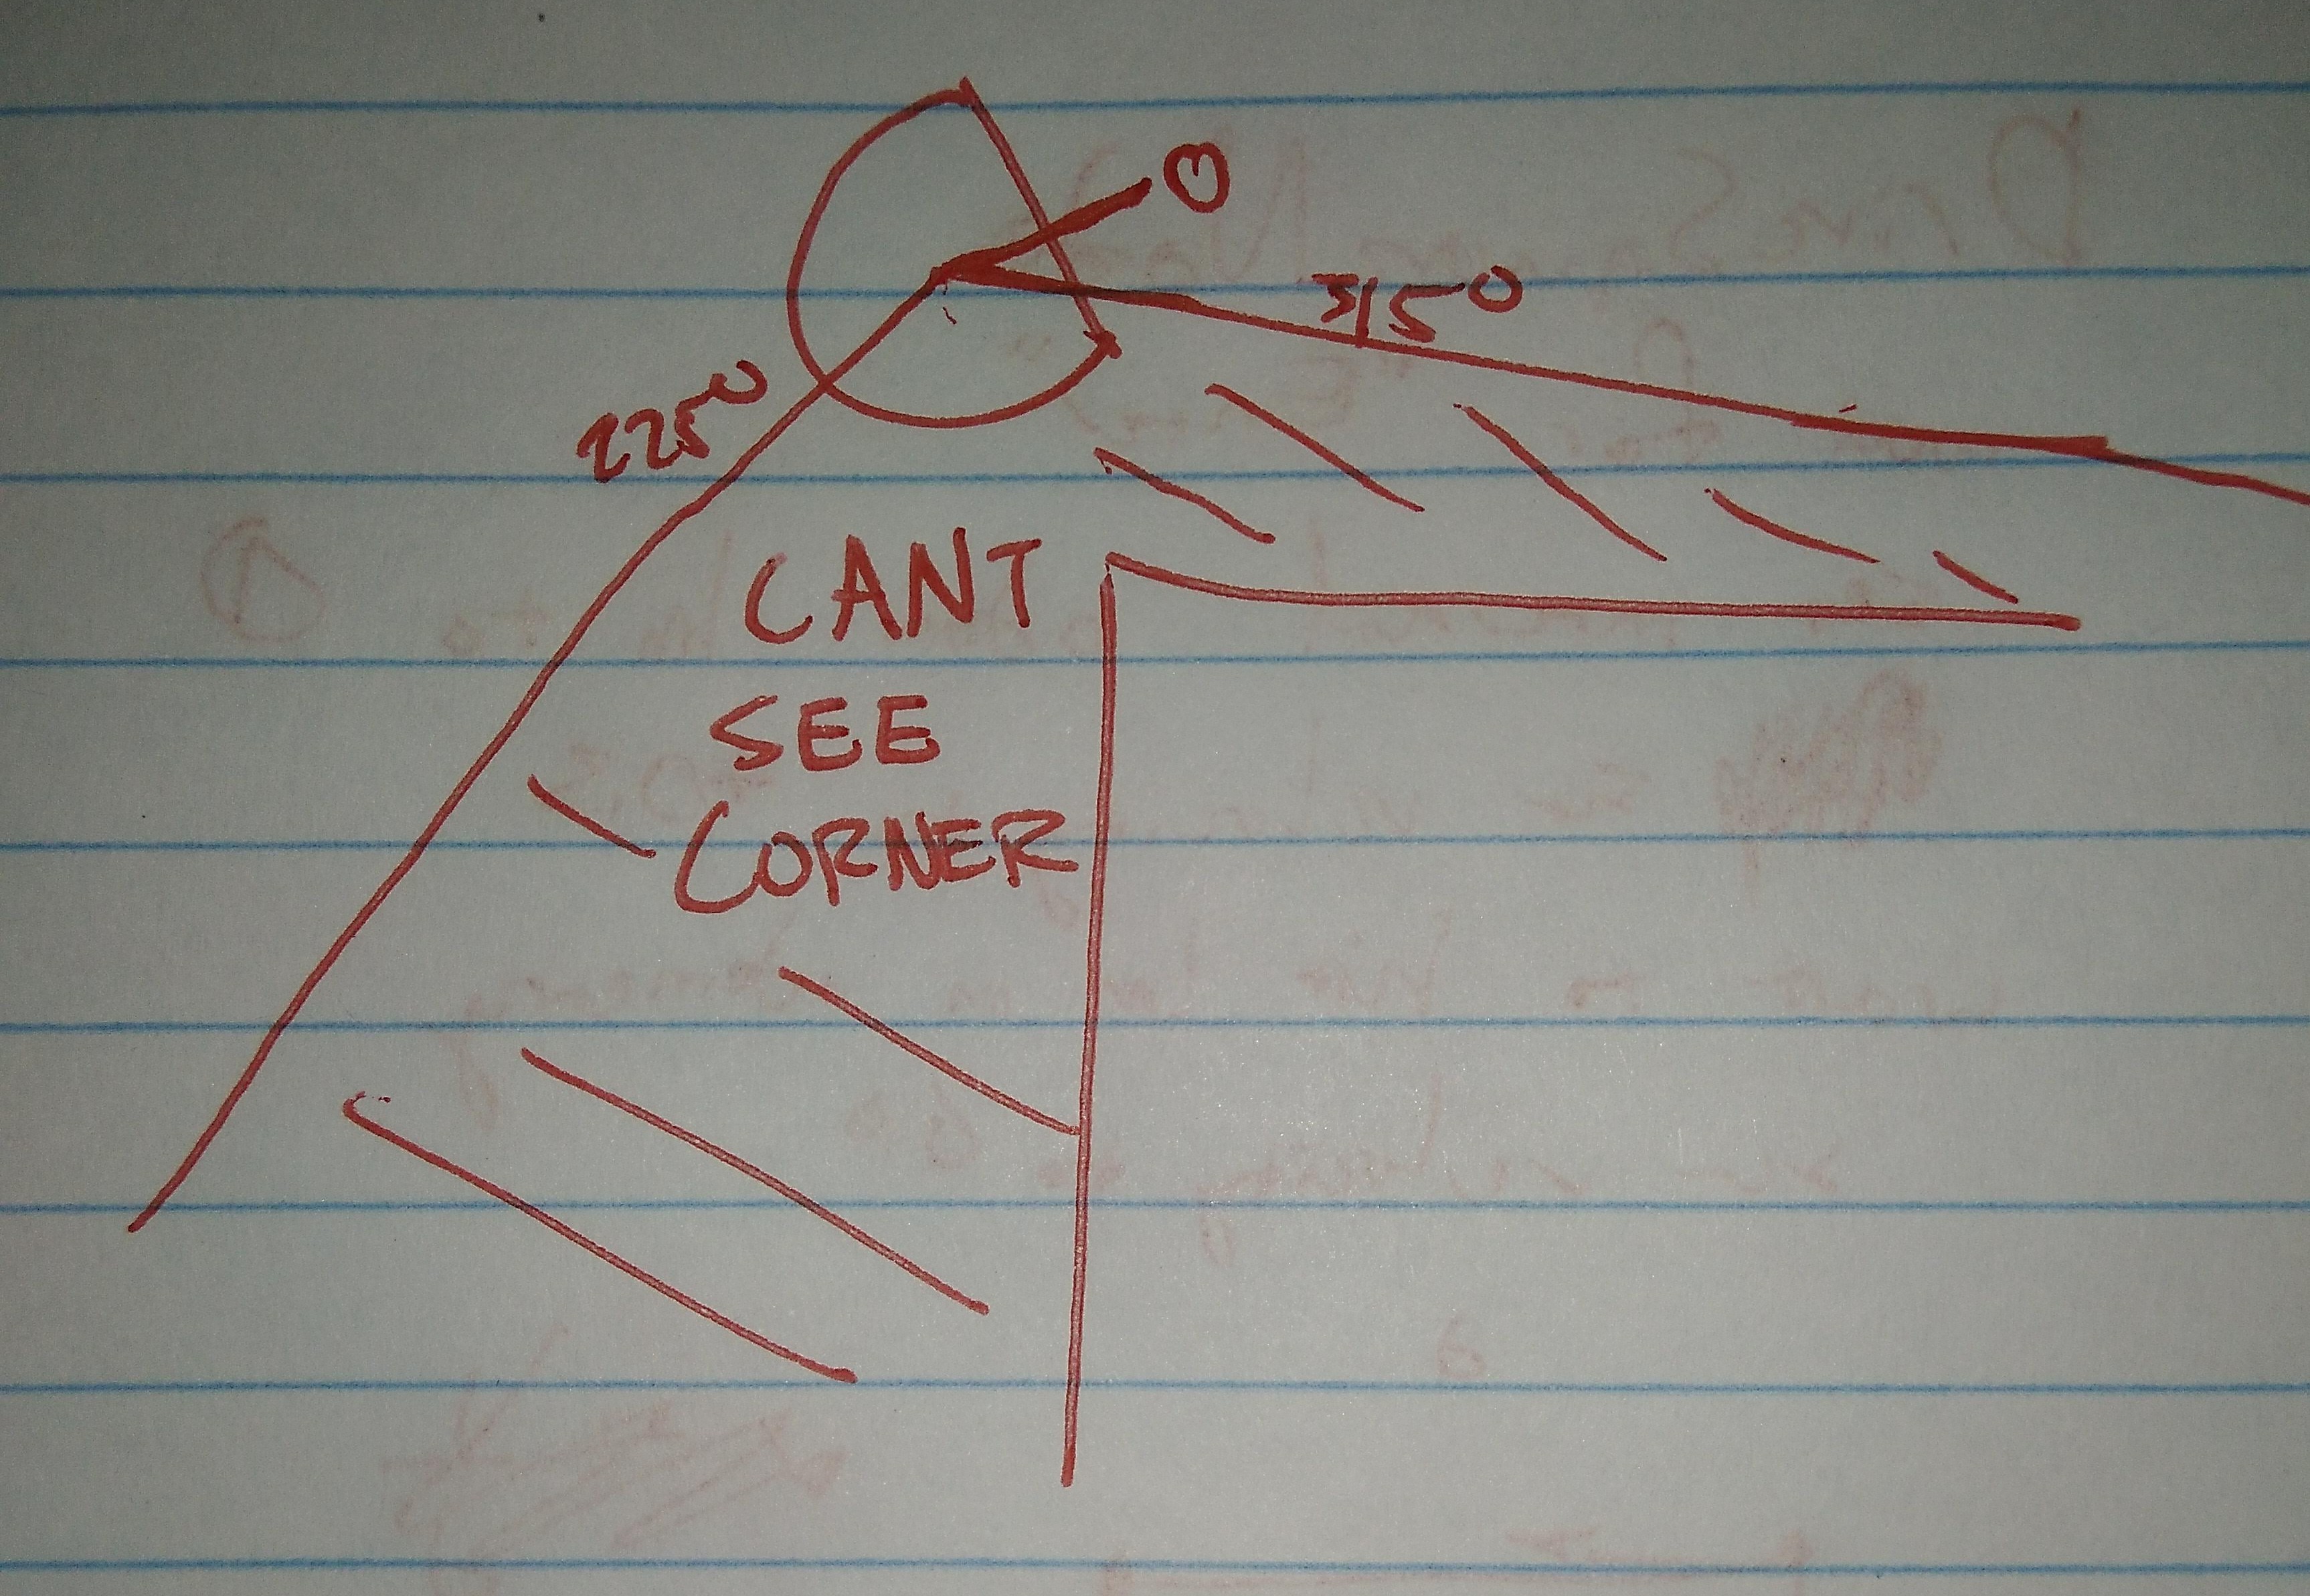 0
315°
225°
CANT
SEE
CORNER